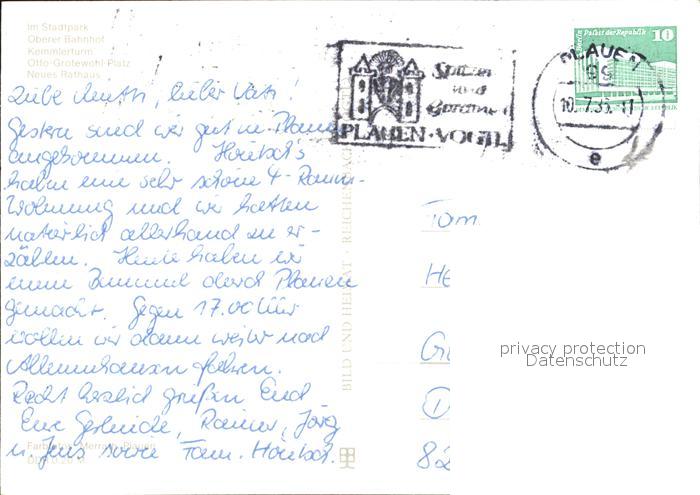 Im Stadtpark
Oberer Bahnhof
Kemmlerturm
Otto-Grotewohl-Platz
Neues Rathaus
Liebe Mutti, lieber Vati!
Gestern sind wir gut in Plauen
angekommen.
haben eine sehr schöne 4-Raum-
Wohnung und wir hatten
natürlich allerhand zu er-
zählen. Heute haben wir
einen Bummel durch Plauen
gemacht. Gegen 17.00 Uhr
wollen wir dann weiter nach
fahren.
Recht herzlich grüßen Euch
Eure Gerlinde, Rainer, Jörg
u. Jens sowie Fam.
BILD UND HEIMAT · REICHENBACH
Spitzen
und
Gardinen
PLAUEN · VOGTL
PLAUEN
99
10. 7. 85.-11
e
Berlin Palast der Republik
10
Fam
He
D
82
privacy protection
Datenschutz